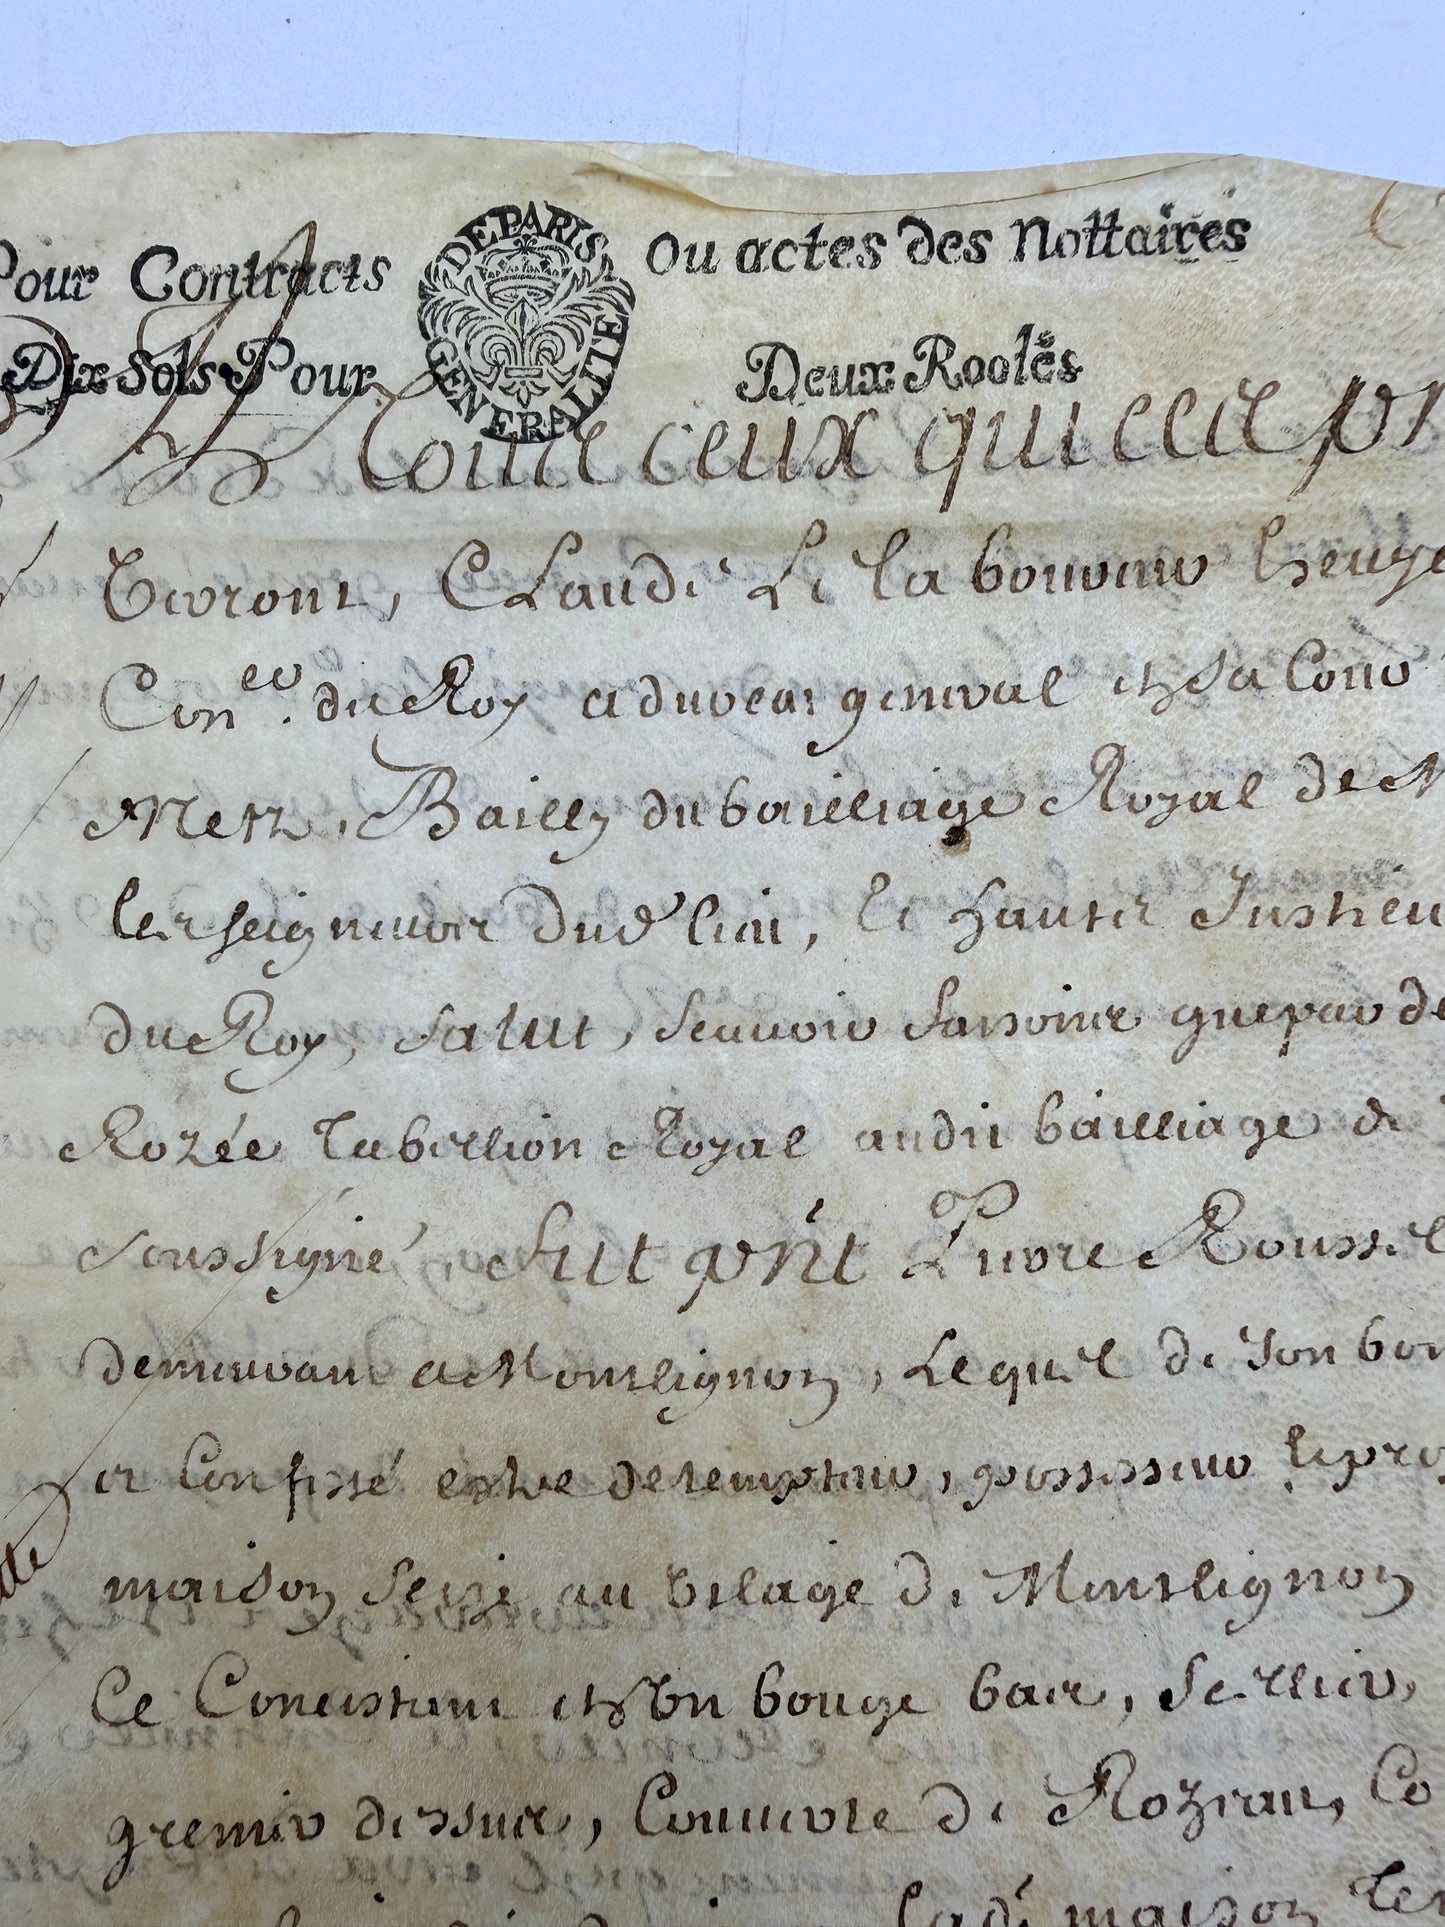 Pour Contracts DE PARIS GENERALITE Ou actes des Nottaires
Dix Sols Pour Deux Rooles
A Tous ceux qui ces pr
verront, Claude Le
Con.er du Roy advocat general en sa Cour
Metz, Bailly du bailliage Royal de
les seigneurs dud lieu, le hault Justicier
du Roy, salut, scavoir faisons que par de
Rozée tabellion Royal audit bailliage de
soussigné, fut pñt Pierre Roussel
demeurant a Montlignon, Lequel de son bon
et confessé estre detempteur, possesseur
maison size au vilage de Montlignon
Ce Concistant en un bouge bas, sellier,
grenier dessus, Couverte de
lad maison